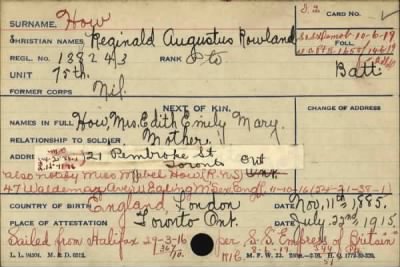 SURNAME. How
D.2
CARD NO.
CHRISTIAN NAMES Reginald Augustus Rowland
FOLL.
REGL. NO. 188243 RANK Pte
UNIT 75th. Batt
FORMER CORPS Nil.
NEXT OF KIN.
CHANGE OF ADDRESS
NAMES IN FULL How, Mrs. Edith Emily Mary.
RELATIONSHIP TO SOLDIER Mother.
ADDRE 121 Pembroke St
Toronto Ont
also notify Miss Mabel How (R.N.S)
47 Waldemar Ave, W Ealing
COUNTRY OF BIRTH England London Nov, 11th, 1885.
PLACE OF ATTESTATION Toronto Ont. July 22nd, 1915.
Sailed from Halifax 29-3-16 per S.S. Empress of Britain
M. F. W. 22.